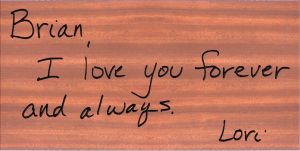 Brian,
I love you forever
and always.
Lori